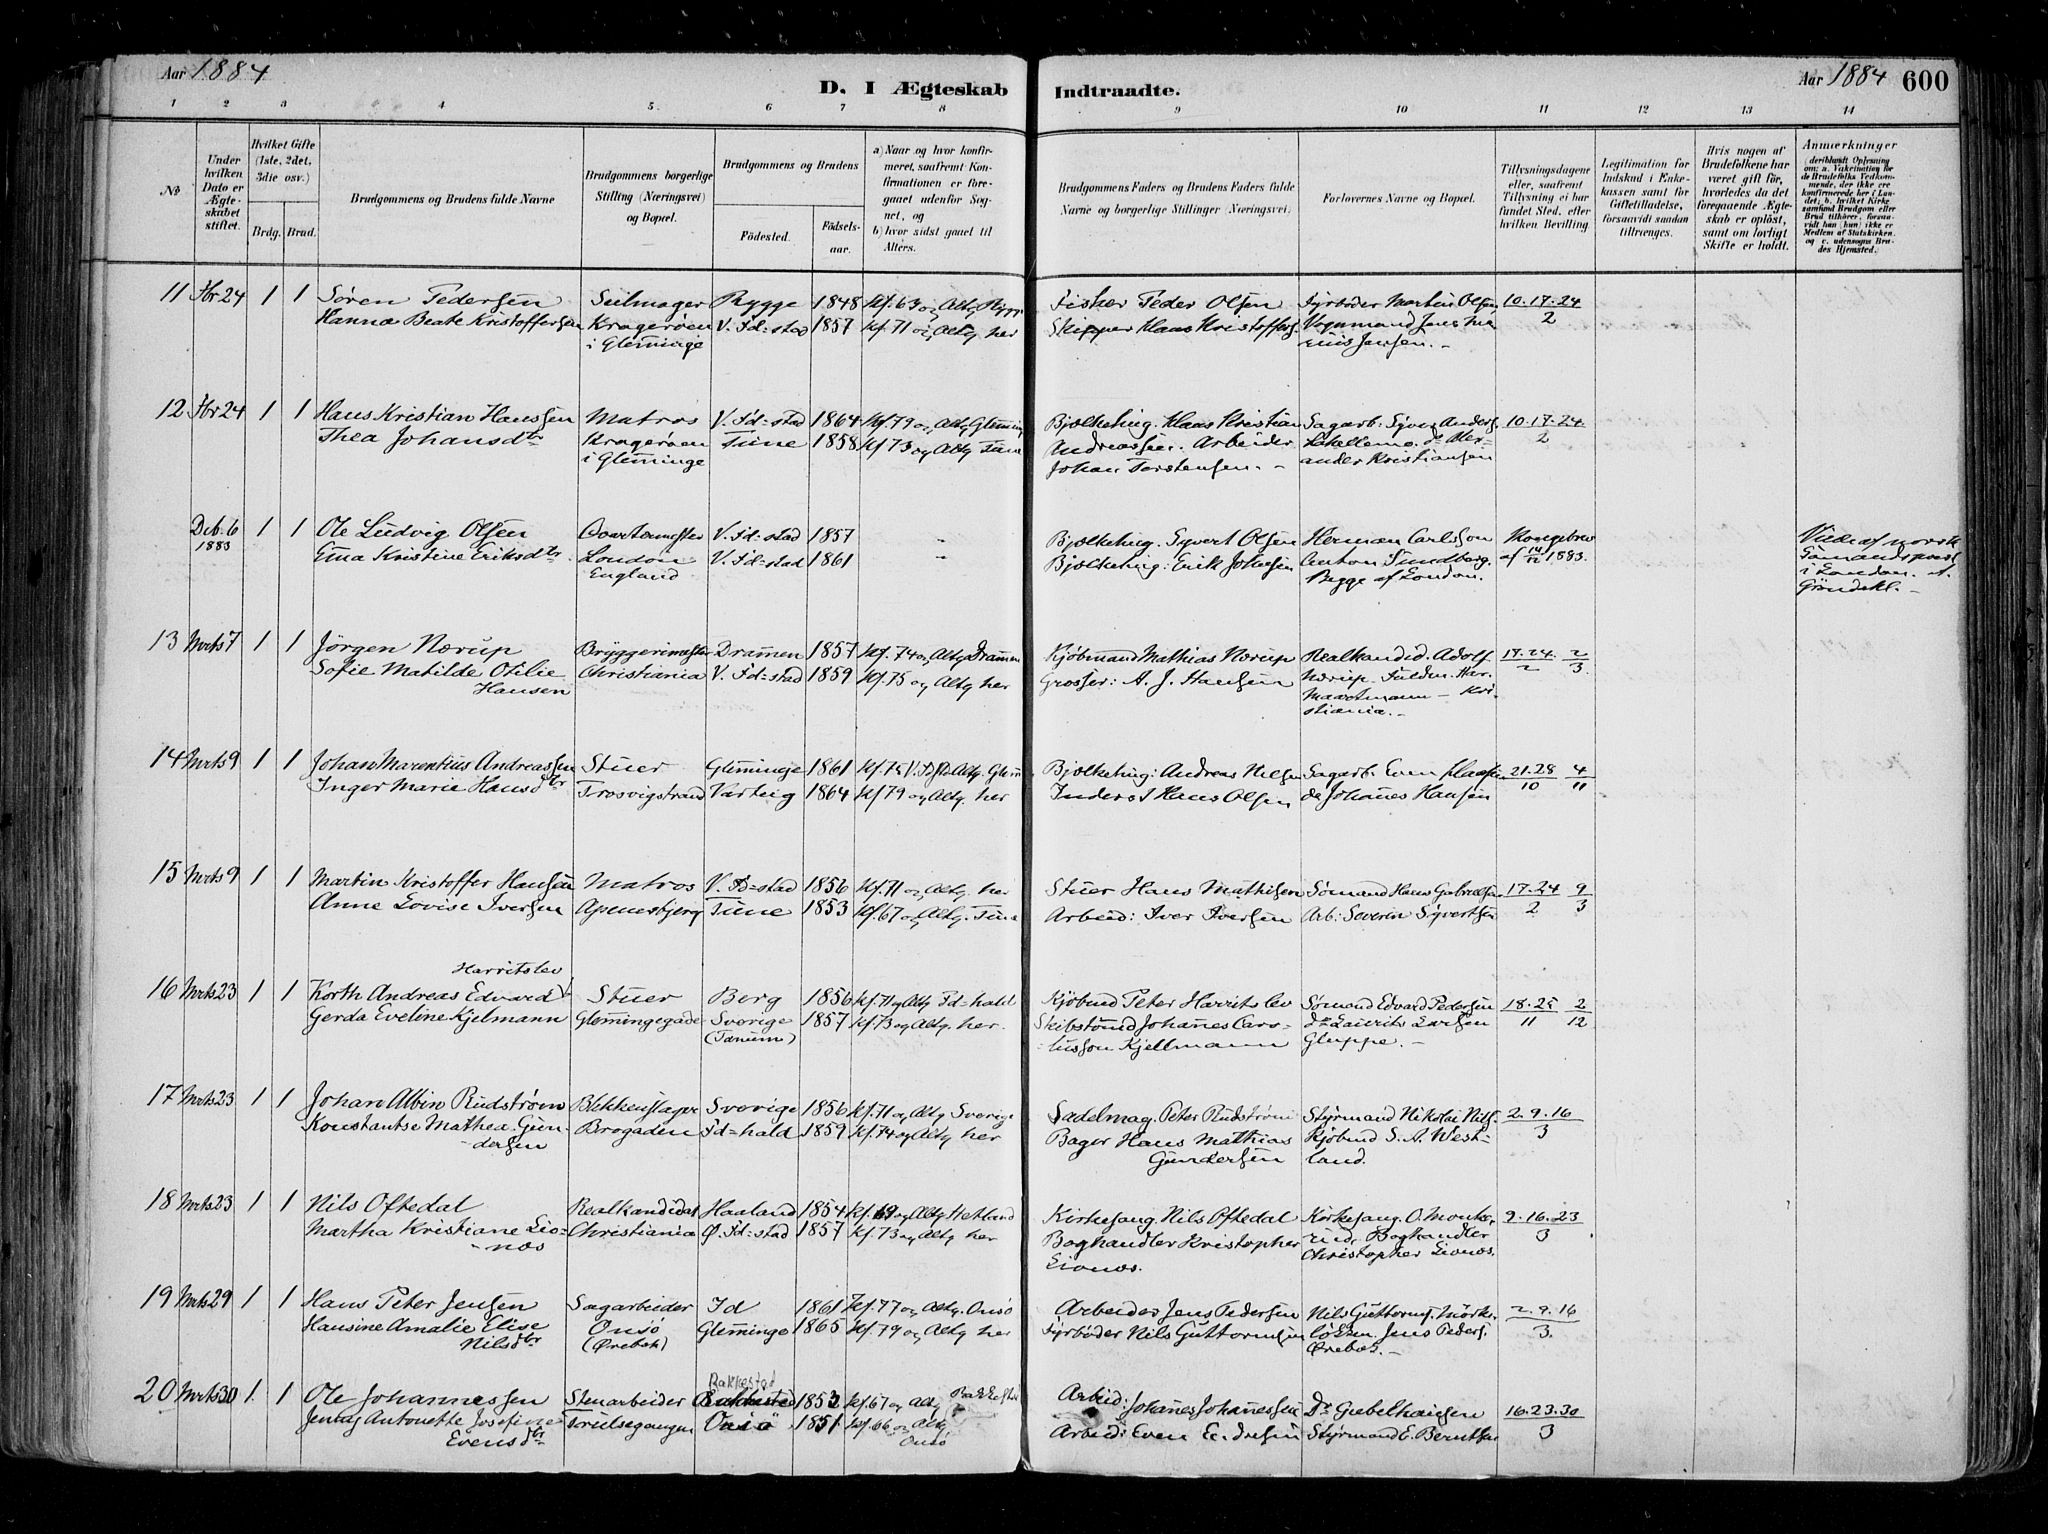 Aar 1884
D. I Ægteskab Indtraadte.
Aar 1884 600
1 2 3 4 5 6 7 8 9 10 11 12 13 14
No
Under hvilken Dato er Ægteskabet stiftet.
Hvilket Gifte (1ste, 2det, 3die osv.)
Brdg. Brud.
Brudgommens og Brudens fulde Navne
Brudgommens borgerlige Stilling (Næringsvei) og Bopæl.
Brudgommens og Brudens
Fødested. Fødselsaar.
a) Naar og hvor konfirmeret, saafremt Konfirmationen er foregaaet udenfor Sognet, og
b) hvor sidst gaaet til Alters.
Brudgommens Faders og Brudens Faders fulde Navne og borgerlige Stillinger (Næringsvei)
Forlovernes Navne og Bopæl.
Tillysningsdagene eller, saafremt Tillysning ei har fundet Sted, efter hvilken Bevilling.
Legitimation for Indskud i Enkekassen samt for Giftetilladelse, forsaavidt saadan tiltrænges.
Hvis nogen af Brudefolkene har været gift før, hvorledes da det foregaaende Ægteskab er opløst, samt om lovligt Skifte er holdt.
Anmerkninger
(deriblandt Oplysning om: a. Vakcination for de Brudefolks Vedkommende, der ikke ere konfirmerede her i Landet; b. hvilket Kirkesamfund Brudgom eller Brud tilhører, forsaavidt han (hun) ikke er Medlem af Statskirken, og c. udensogns Brudes Hjemsted.
11 Fbr 24 1 1 Sören Pedersen Seilmager Rygge 1848 Kf. 63 og Altg Rygge Fisker Peder Olsen Fyrbøder Martin Olsen, 10.17.24
Hanna Beate Kristoffersen Kragerøen V. Fd=stad 1857 Kf. 71 og Altg her Skipper Klaus Kristoffers. Vognmand Jens Ma 2
i Glemminge rius Jensen.
12 Fbr 24 1 1 Hans Kristian Hanssen Matros V. Fd=stad 1864 Kf. 79 og Altg Glemming Bjælkehug. Hans Kristian Sagarb. Syver Anders. 10.17.24
Thea Johansdtr Kragerøen Tune 1858 Kf 73 og Altg Tune Andreassen. Arbeider 2
i Glemminge Johan Torstensen. ander Kristiansen
Dcb. 6 1 1 Ole Ludvig Olsen V. Fd=stad 1857 " Bjælkehug. Syvert Olsen Herman Carlsson Kongebrev Viede af norsk
1883 Ema Kristine Eriksdtr London V. Fd=stad 1861 " Bjælkehug: Erik Johnsen Anton Sundberg. af 14/11 1883. Sømandspræst
England Begge af London. i London. A.
13 Mrts 7 1 1 Jörgen Nærup Bryggerimester Dramen 1857 Kf. 74 og Altg Dramen Kjöbmand Mathias Nærup Realkandid. Adolf 17.24. 2
Sofie Matilde Otilie Christiania V. Fd=stad 1859 Kf. 75 og Altg her Grosser: A. J. Hansen Nærup. 2 3.
Hansen Kri-
stiania.
14 Mrts 9 1 1 Johan Marentius Andreassen Stuer Glemminge 1861 Kf. 75 V. Fdst. Altg. Glem. Bjælkehug: Andreas Nilsen Sagarb. Even Klausen 21.28 4
Inger Marie Hansdtr Trosvigstrand Varteig 1864 Kf 79 og Altg. her Inderst Hans Olsen do Johanes Hansen 10 11
15 Mrts 9 1 1 Martin Kristoffer Hansen Matros V. Fd=stad 1856 Kf. 71 og Altg. her Stuer Hans Mathisen Sömand Hans Gabrielsen 17.24 9
Anne Lovise Iversen Apenesbjerg Tune 1853 Kf. 67 og Altg. Tune Arbeid: Iver Iversen Arb: Severin Syvertsen 2 3
Harritslev
16 Mrts 23 1 1 Korth Andreas Edvard Stuer Berg 1856 Kf. 71 og Altg Fd=hald Kjöbmd Peter Harritslev Sömand Edvard Pedersen 18.25 2
Gerda Eveline Kjelmann Glemmingegade Sverige 1857 Kf. 73 og Altg. her. Skibstömd Johanes Cars- do Laurits Larsen 11 12
(Tanum) tusson Kjellmann Gluppe.
17 Mrts 23 1 1 Johan Albin Rudström Blikkenslager Sverige 1856 Kf. 71 og Altg Sverige Sadelmag. Peter Rudström Styrmand Nikolai Nils. 2.9.16
Konstantse Mathea Gun- Brogaden Fd=hald 1859 Kf. 74 og Altg her Bager Hans Mathias Kjöbmd S. A. West- 3
dersen Gundersen land.
18 Mrts 23 1 1 Nils Oftedal Realkandidat Haaland 1854 Kf. 69 og Altg Hetland Kirkesang. Nils Oftedal Kirkesang. O. Monke- 9.16.23
Martha Kristiane Lio- Christiania Ø. Fd=stad 1857 Kf. 73 og Altg her Boghandler Kristopher rud, Boghandler 3
næs Lionæs. Christopher Lionæs.
19 Mrts 29 1 1 Hans Peter Jensen Sagarbeider Id 1861 Kf. 77 og Altg. Onsö Arbeider Jens Pedersen Nils Guttorms. Mörke- 2.9.16
Hansine Amalie Elise Onsö Glemminge 1865 Kf. 79 og Altg her Fyrbøder Nils Guttormsen lökken. Jens Peders. 3.
Nilsdtr (Ørebæk) Ørebæk.
Bakkestad
20 Mrts 30 1. 1 Ole Johannessen Stenarbeider Bakkested 1853 Kf. 67 og Altg Arbeid: Johanes Johanessen Do Gabelhausen 16.23.30
Jenny Antonette Josefine Truelsegangen Onsö 1851 Kf. 66 og Altg Arbeid: Even Styrmand E. Berntsen 3
Evensdtr Onsö